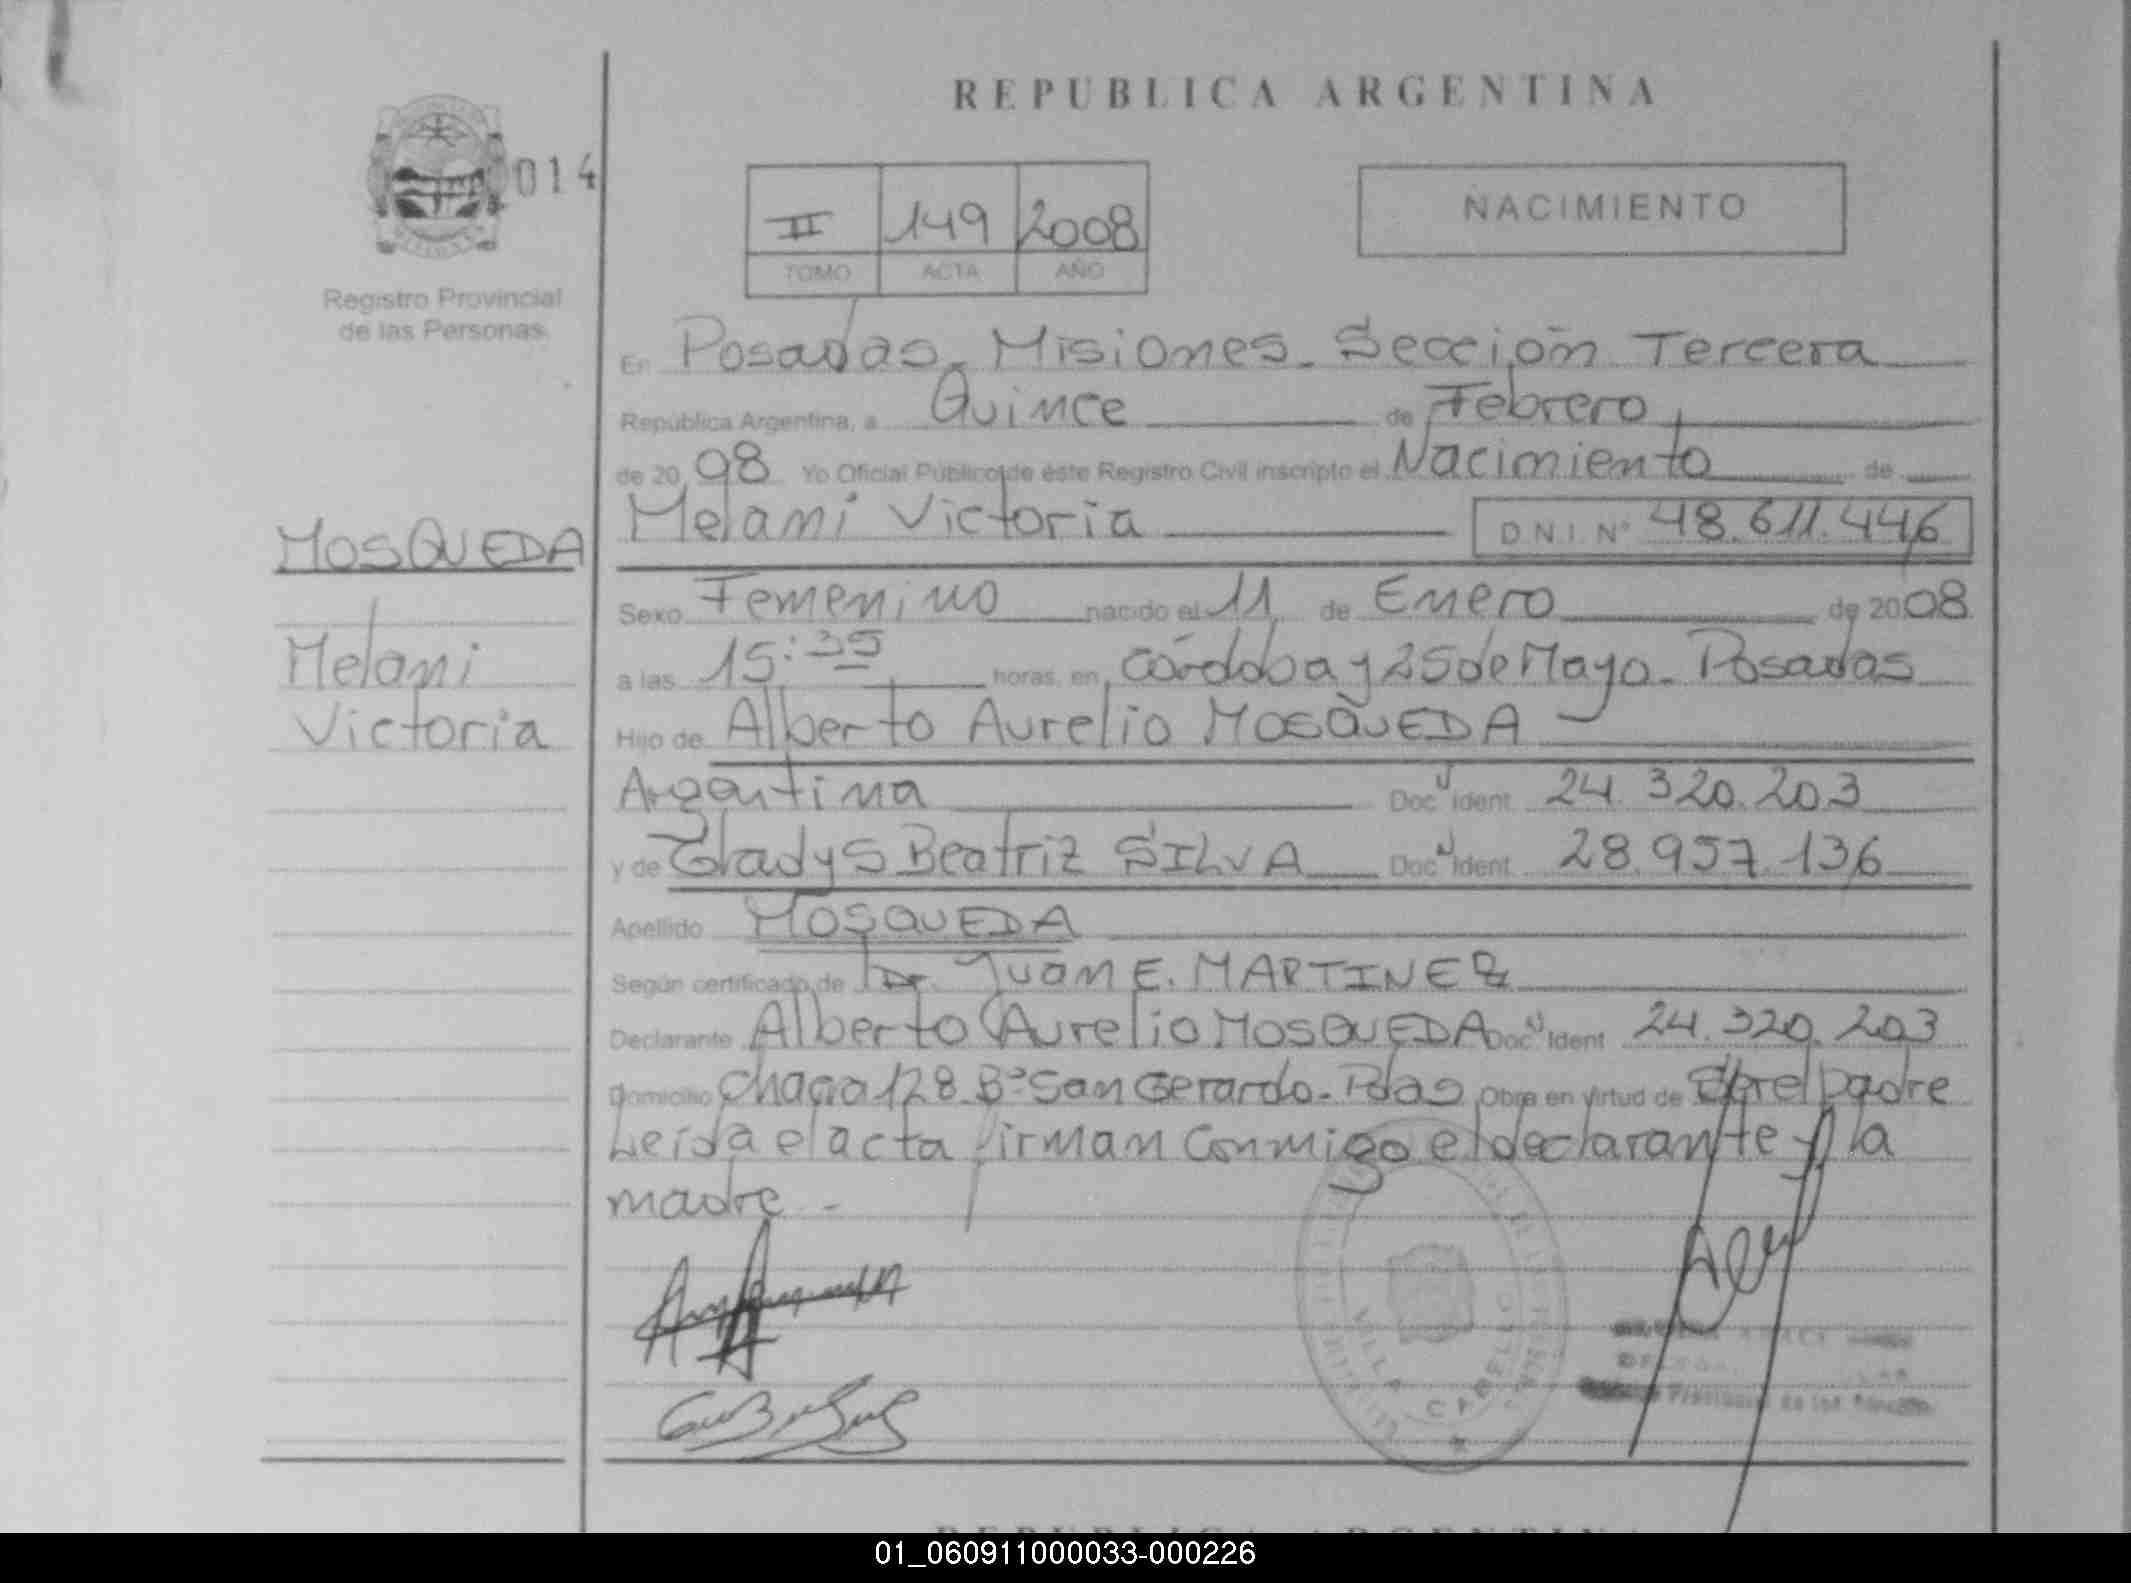 REPUBLICA ARGENTINA
014
II 149 2008
TOMO ACTA AÑO
NACIMIENTO
Registro Provincial
de las Personas
En Posadas, Misiones. Sección Tercera
República Argentina, a Quince de Febrero
de 2008 Yo Oficial Público de éste Registro Civil inscripto el Nacimiento de
Melani Victoria D.N.I. Nº 48.611.446
MOSQUEDA
Melani
Victoria
Sexo Femenino nacido el 11 de Enero de 2008
a las 15:35 horas, en Córdoba y 25 de Mayo. Posadas
Hijo de Alberto Aurelio MOSQUEDA
Argentina Doc Ident 24.320.203
y de Gladys Beatriz SILVA Doc Ident 28.957.136
Apellido MOSQUEDA
Según certificado de Dr. Juan E. MARTINEZ
Declarante Alberto Aurelio MOSQUEDA Doc Ident 24.320.203
Domicilio Chacra 128 Bº San Gerardo. Pdas Obra en virtud de Ser el padre
Leída el acta firman conmigo el declarante y la
madre.-
VILLA CABELLO
Provincial de las Personas
REPUBLICA ARGENTINA
01_060911000033-000226